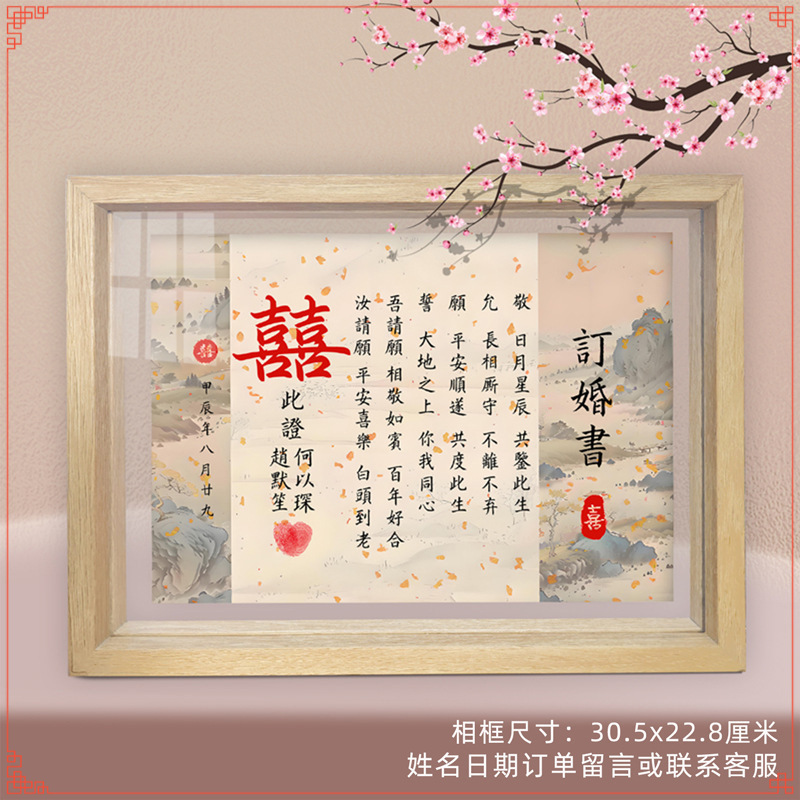 訂婚書
囍
敬 日月星辰 共鑒此生
允 長相厮守 不離不弃
願 平安順遂 共度此生
誓 大地之上 你我同心
吾請願 相敬如賓 百年好合
汝請願 平安喜樂 白頭到老
囍
此證
何以琛
趙默笙
囍
甲辰年八月廿九
相框尺寸：30.5x22.8厘米
姓名日期订单留言或联系客服